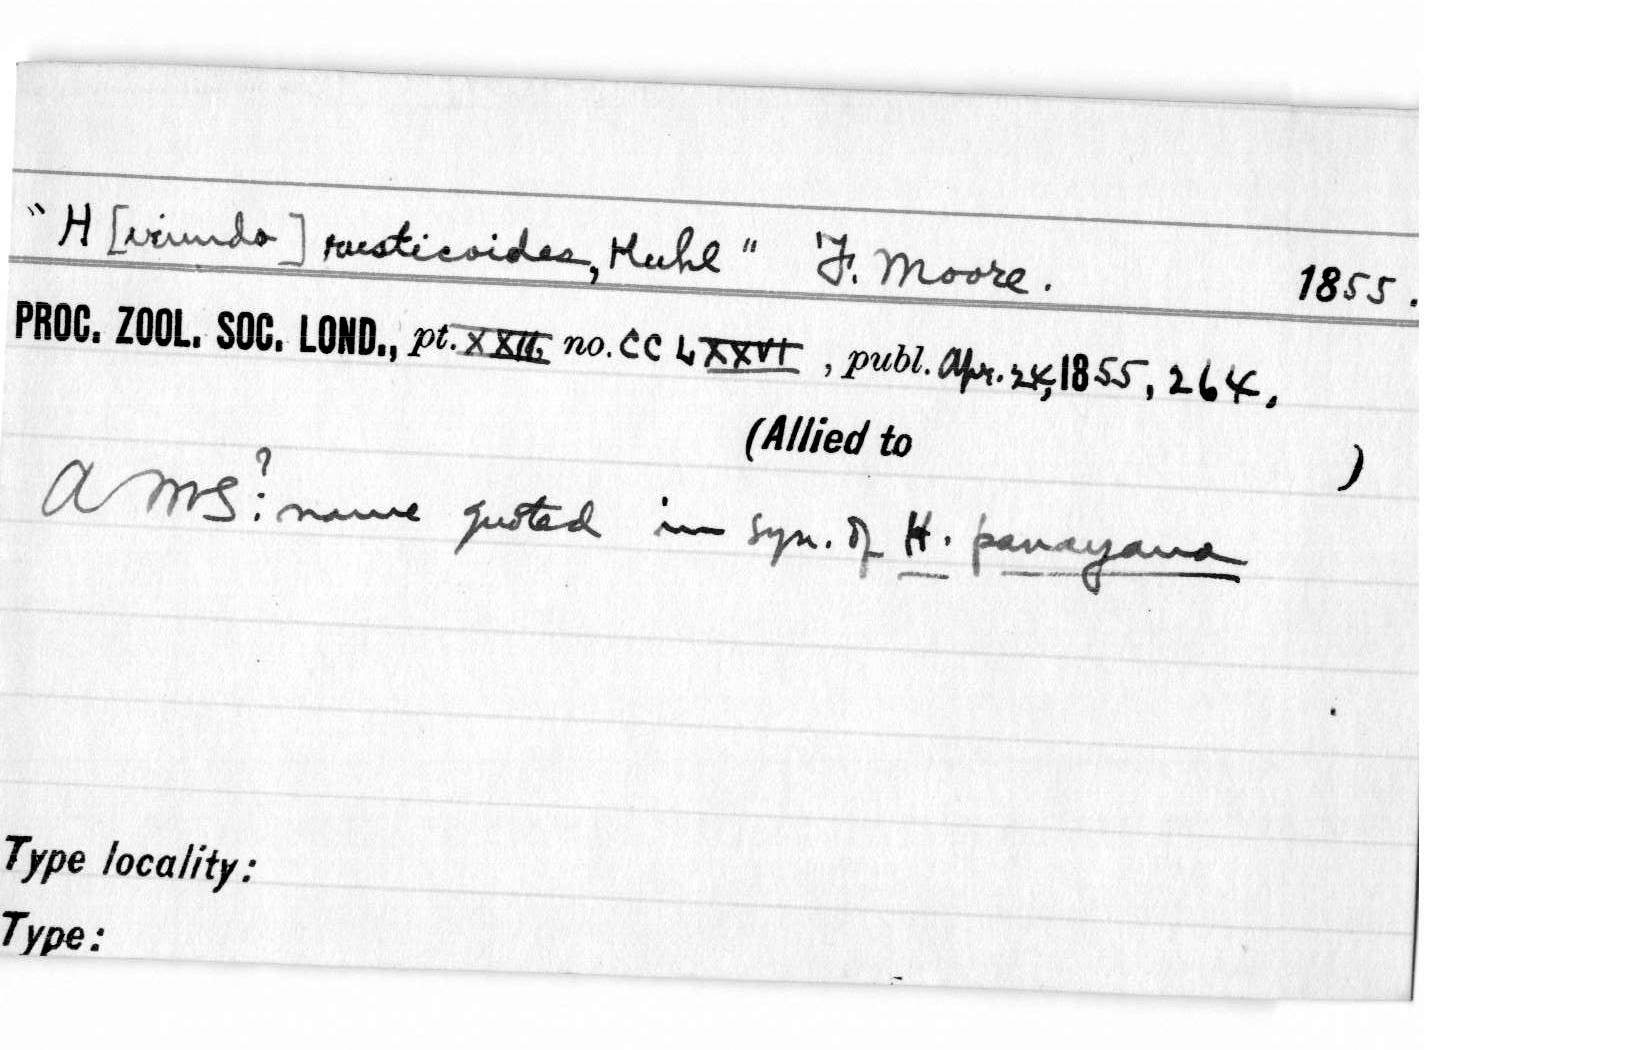 "H[irundo] rusticoides, Kuhl" F. Moore. 1855.
PROC. ZOOL. SOC. LOND., pt. XXII, no. CCLXXVI, publ. Apr. 24, 1855, 264.
(Allied to )
A MS?: name quoted in syn. of H. panayana
Type locality:
Type: